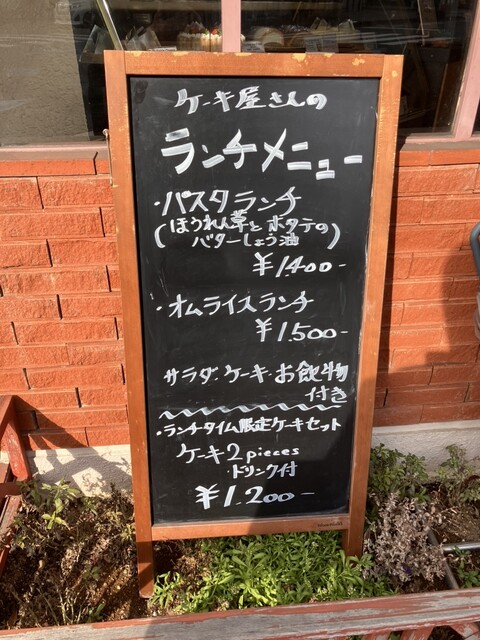 ケーキ屋さんの
ランチメニュー
・パスタランチ
(ほうれん草とホタテの
バターしょう油)
¥1,400-
・オムライスランチ
¥1,500-
サラダ・ケーキ・お飲物
付き
・ランチタイム限定ケーキセット
ケーキ2pieces
・ドリンク付
¥1,200-